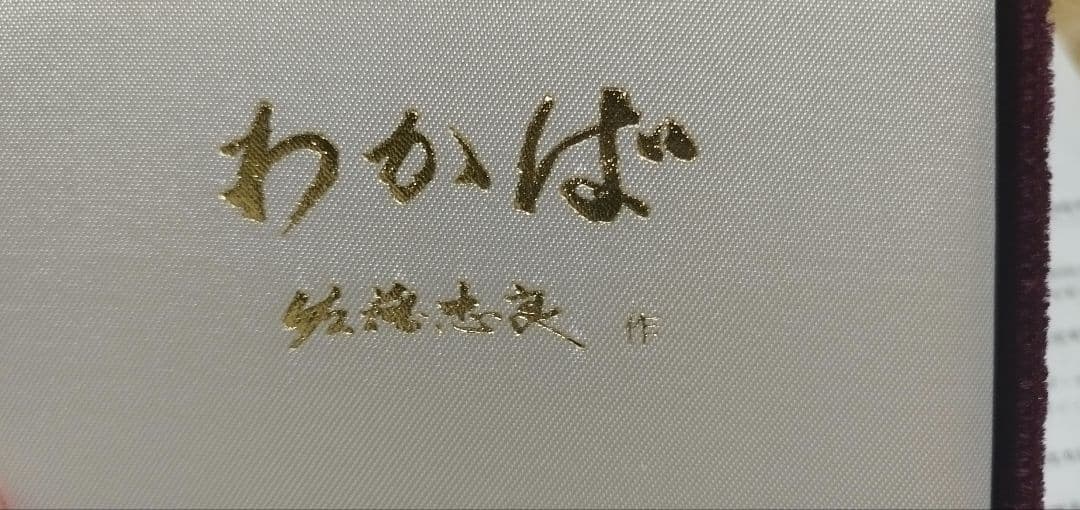 わかば
佐藤忠良 作